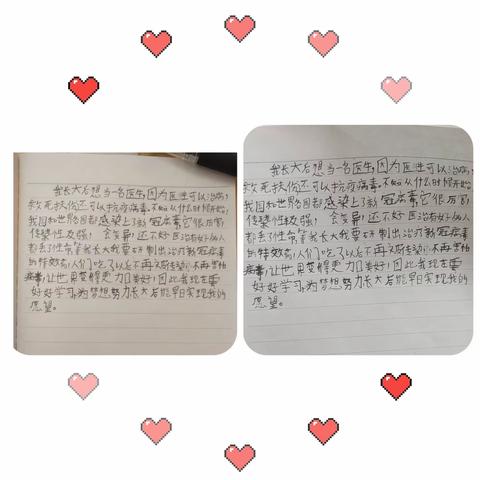 我长大后想当一名医生,因为医生可以治病,
救死扶伤还可以抗疫病毒。不知从什么时候开始
我国和世界各国都感染上了新冠病毒它很厉害
传染性极强,会变异,还不好医治有好多人
都丢了性命等我长大我要研制出治疗新冠病毒
的特效药,人们吃了以后不再交叉感染不再害怕
病毒,让世界变得更加美好,因此我现在要
好好学习,为梦想努力长大后能早日实现我的
愿望。
我长大后想当一名医生,因为医生可以治病,
救死扶伤还可以抗疫病毒。不知从什么时候开始
我国和世界各国都感染上了新冠病毒它很厉害
传染性极强,会变异,还不好医治有好多人
都丢了性命等我长大我要研制出治疗新冠病毒
的特效药,人们吃了以后不再交叉感染不再害怕
病毒,让世界变得更加美好,因此我现在要
好好学习,为梦想努力长大后能早日实现我的
愿望。